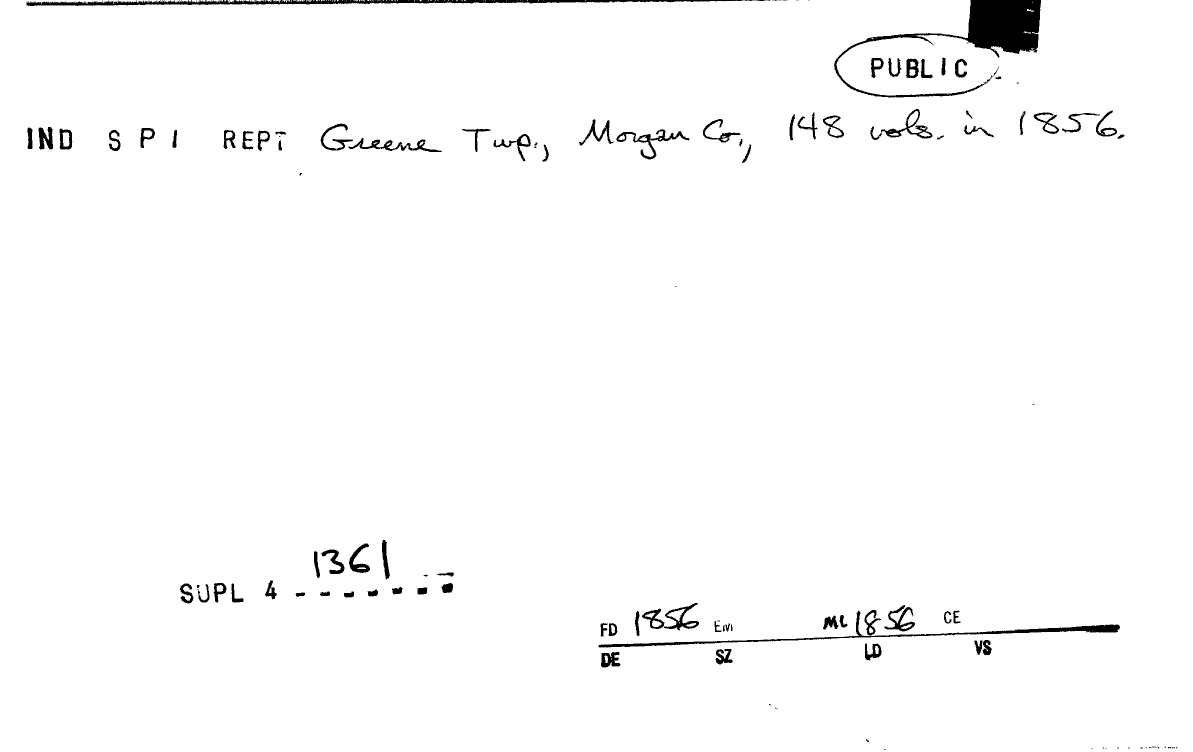 PUBLIC
IND S P I REPT Greene Twp., Morgan Co., 148 vols. in 1856.
1361
SUPL 4 - - - - - - -
FD 1856 EM ML 1856 CE
DE SZ LD VS